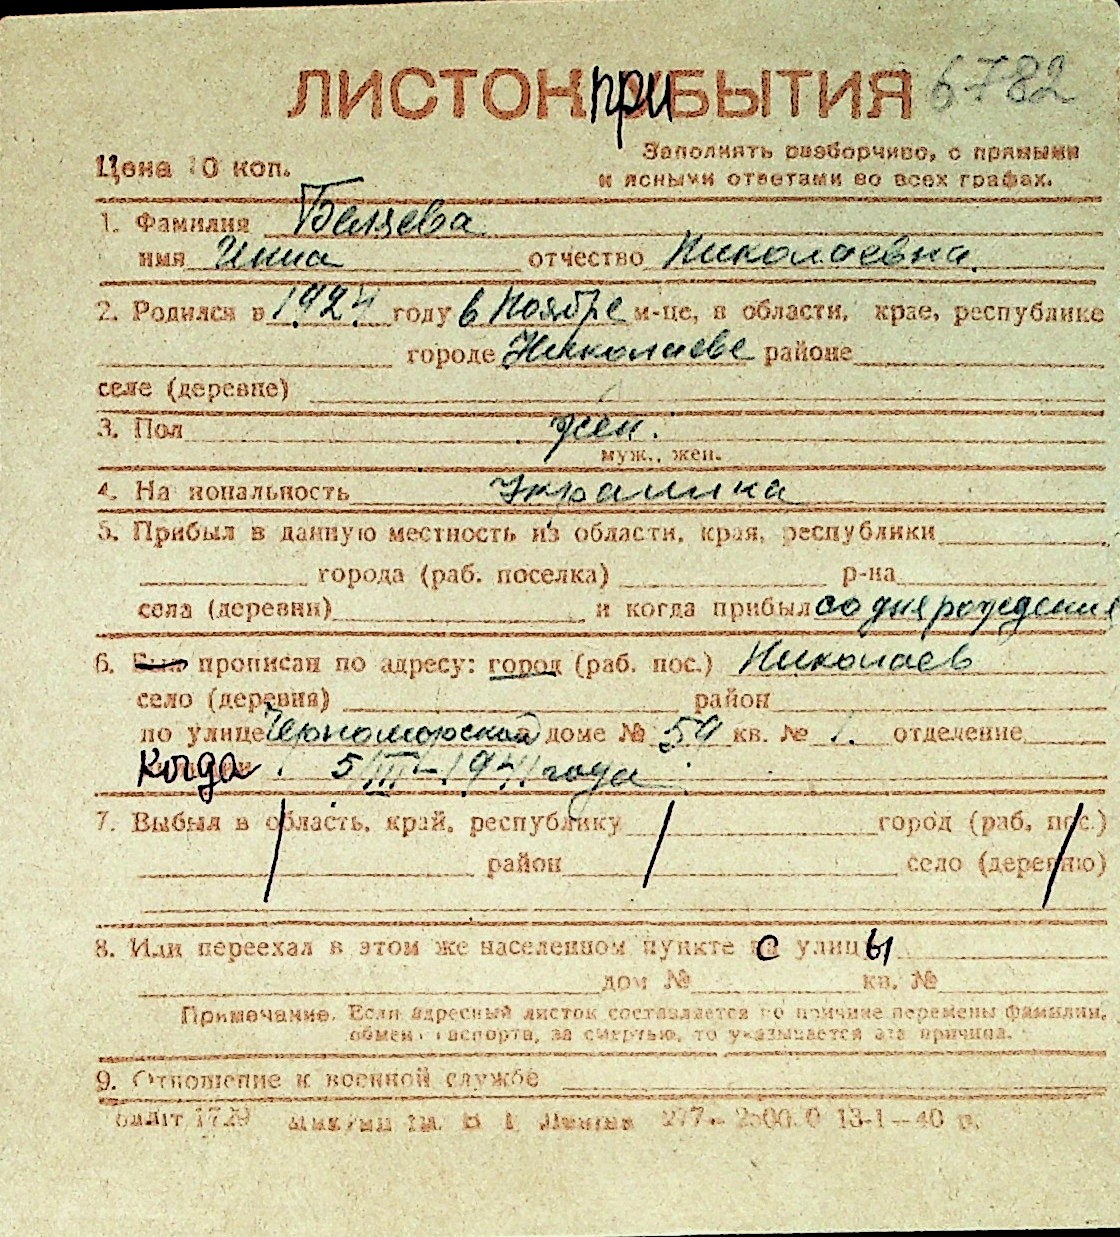 ЛИСТОК ПРИБЫТИЯ 6782
Цена 10 коп.
Заполнять разборчиво, с прямыми
и ясными ответами во всех графах.
1. Фамилия
имя Инна отчество Николаевна
2. Родился в 1924 году в Ноябре м-це, в области, крае, республике
городе Николаеве районе
селе (деревне)
3. Пол жен.
муж., жен.
4. На иональность Украинка
5. Прибыл в данную местность из области, края, республики
города (раб. поселка) р-на
села (деревни) и когда прибыл со дня рождения
6. Был прописан по адресу: город (раб. пос.) Николаев
село (деревня) район
по улице Черноморской доме № 59 кв. № 1. отделение
Когда 5/III-1941 года
7. Выбыл в область, край, республику город (раб. пос.)
район село (деревню)
8. Или переехал в этом же населенном пункте с улицы
дом № кв. №
Примечание. Если адресный листок составляется по причине перемены фамилии,
обмен паспорта, за смертью, то указывается эта причина.
9. Отношение к военной службе
1729 277 13-1-40 р.